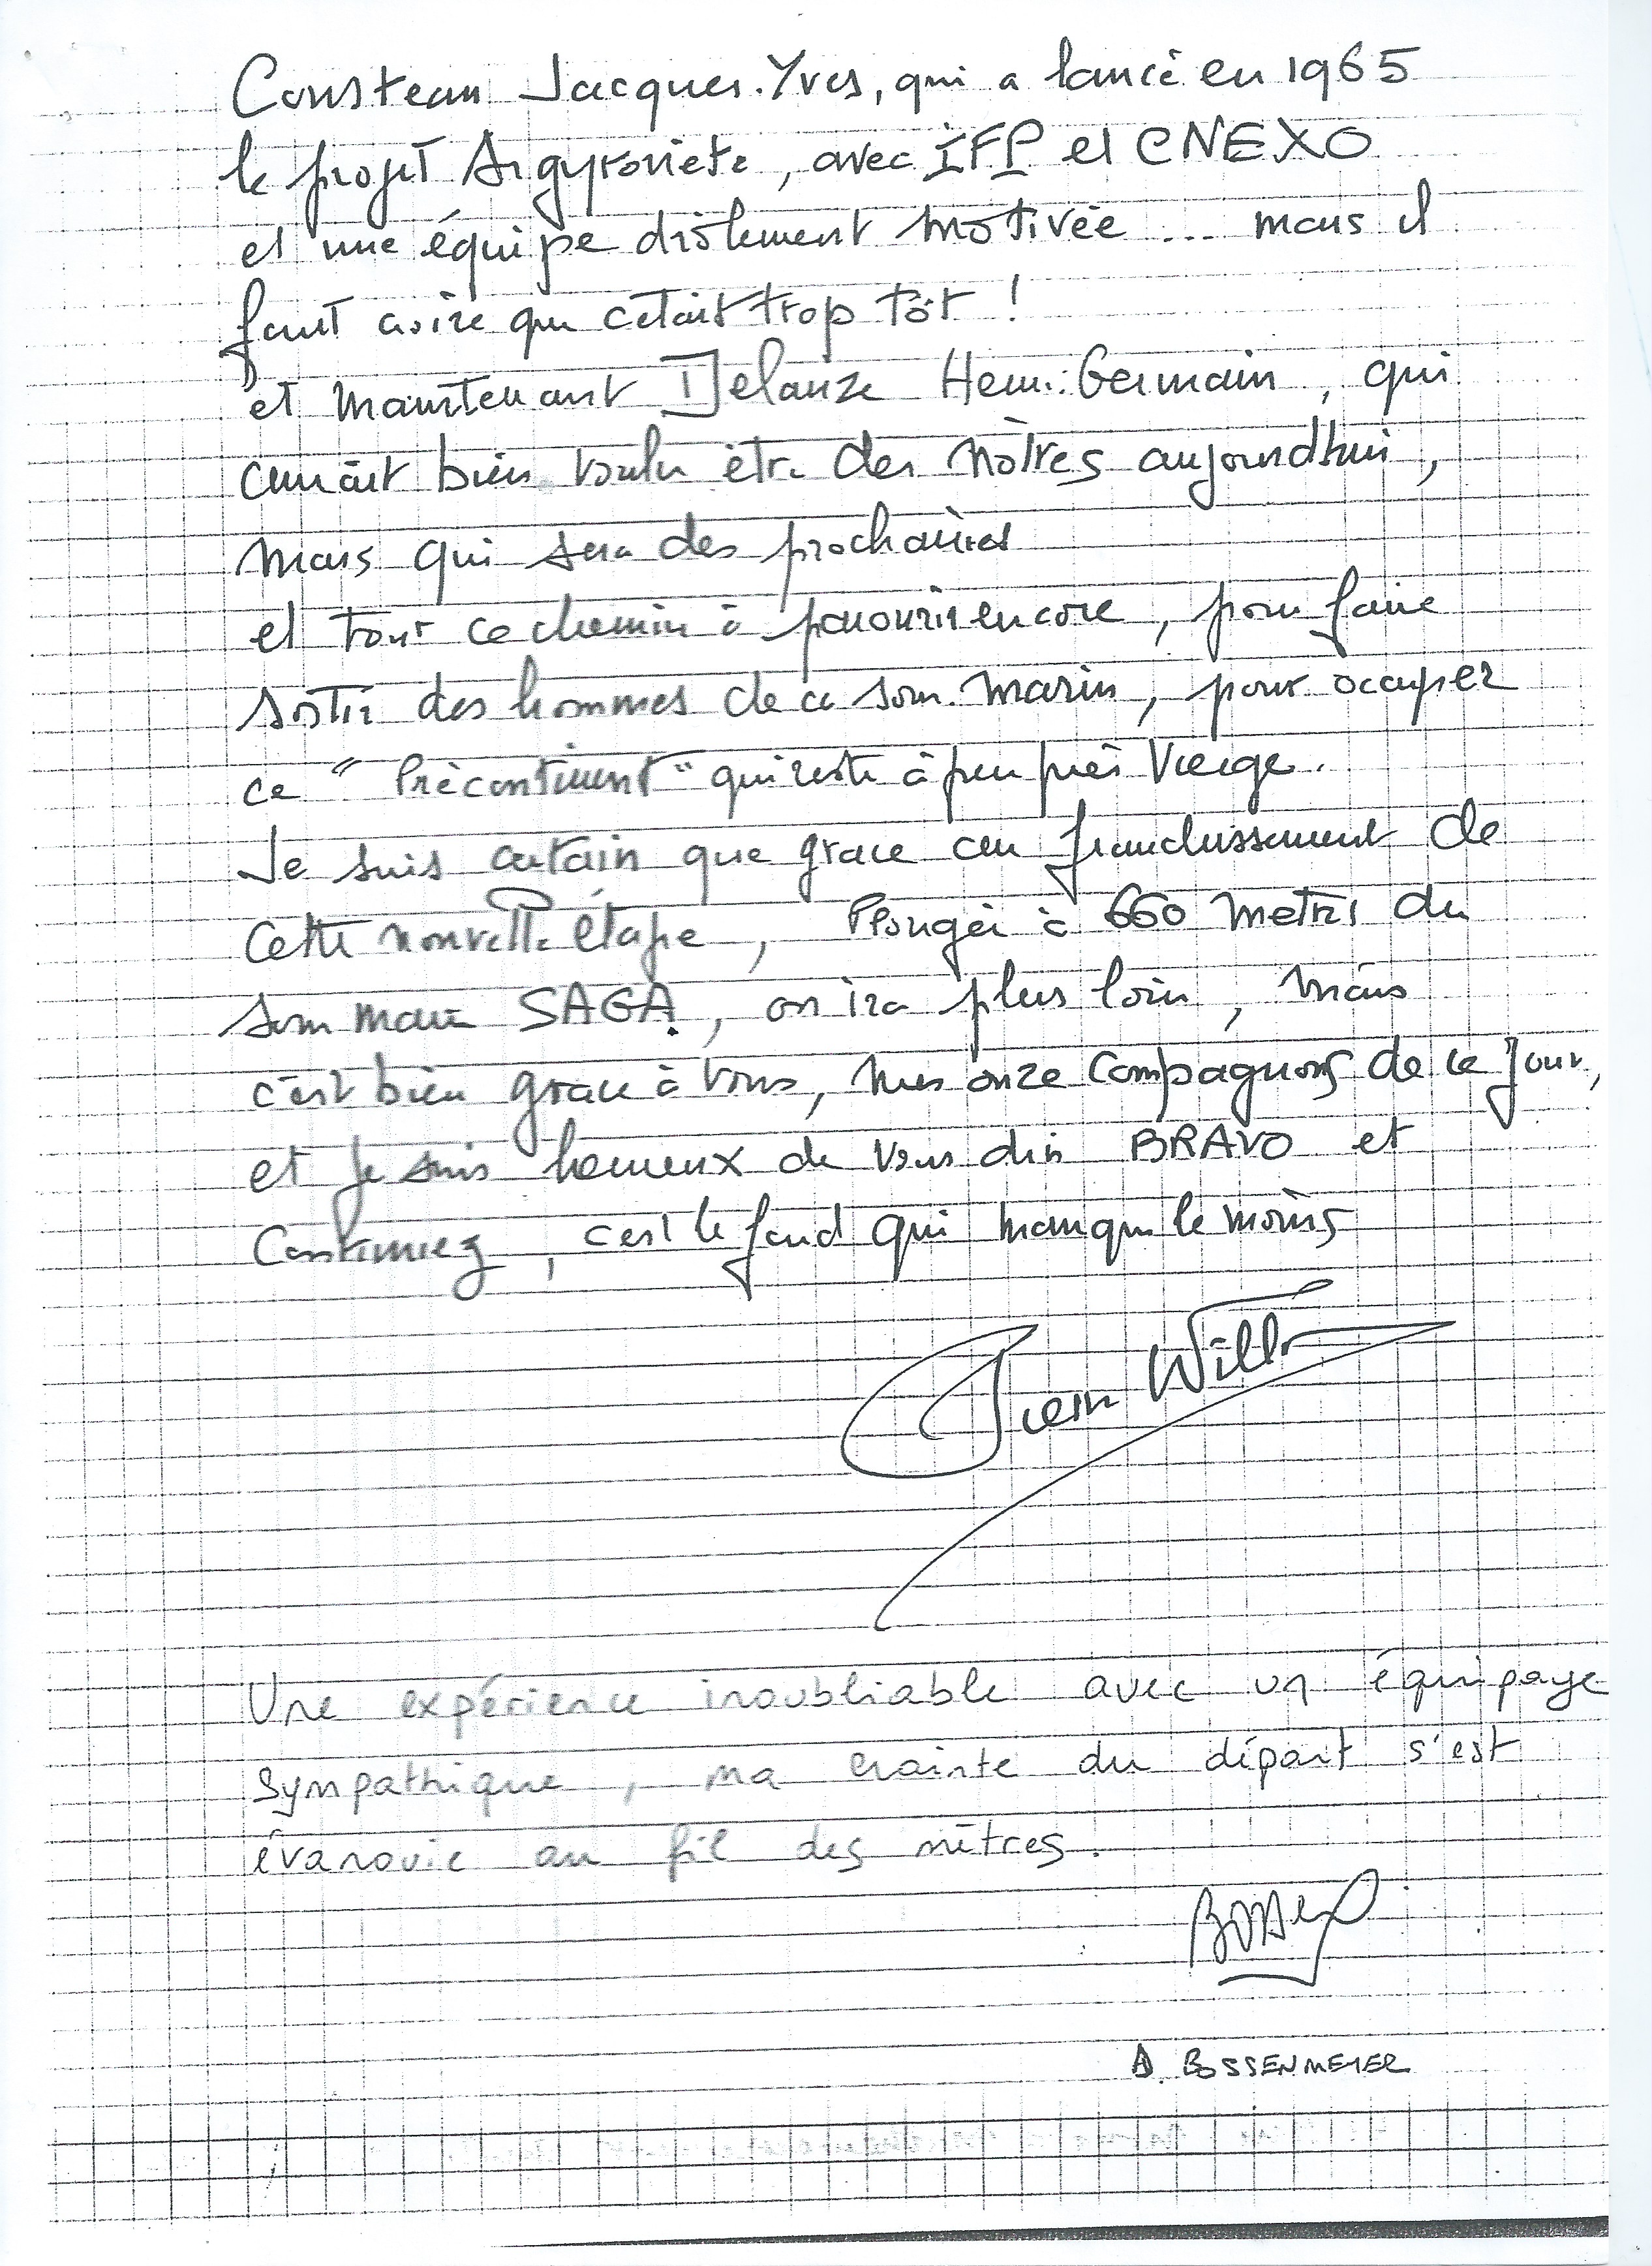 Cousteau Jacques-Yves, qui a lancé en 1965
le projet Argyronète, avec IFP et CNEXO
et une équipe drôlement motivée ... mais il
faut croire que c'était trop tôt !
et maintenant Delauze Henri-Germain, qui
aurait bien voulu être des nôtres aujourd'hui,
mais qui sera des prochaines
et tout ce chemin à parcourir encore, pour faire
sortir des hommes de ce sous-marin, pour occuper
ce "Précontinent" qui reste à peu près vierge.
Je suis certain que grace au franchissement de
cette nouvelle étape, Plongée à 660 mètres du
sous marin SAGA, on ira plus loin, mais
c'est bien grace à vous, mes onze compagnons de ce jour,
et je suis heureux de vous dire BRAVO et
Continuez, c'est le fond qui manque le moins
Jean Willm
Une expérience inoubliable avec un équipage
sympathique, ma crainte du départ s'est
évanouie au fil des mètres.
A. BOSSENMEYER